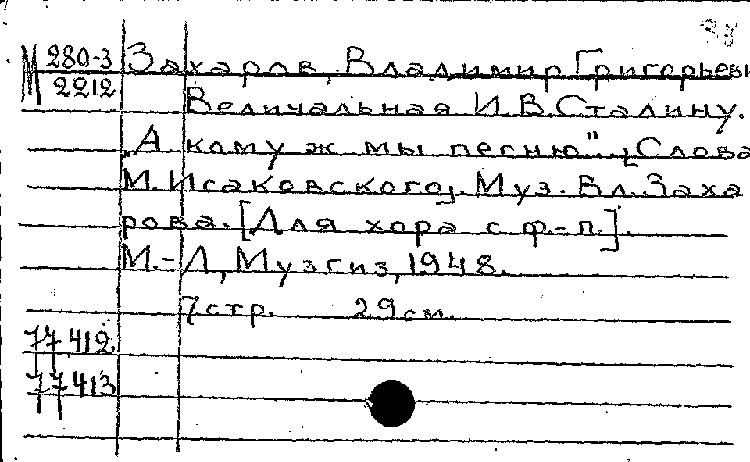 М 280-3 Захаров, Владимир Григорьеви
2212 Величальная И.В.Сталину.
„А кому ж мы песню". [Слова
М. Исаковского]. Муз. Вл. Заха
рова. [Для хора с ф.-п.].
М.-Л, Музгиз, 1948.
7 стр. 29 см.
77412
77413